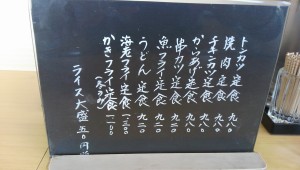 トンカツ定食 九八〇
焼肉定食 九八〇
チキンカツ定食 九八〇
からあげ定食 九八〇
串カツ定食 九二〇
魚フライ定食 九二〇
うどん定食 九二〇
海老フライ定食 一三〇〇
かきフライ定食 一一〇〇
ライス大盛 五〇円